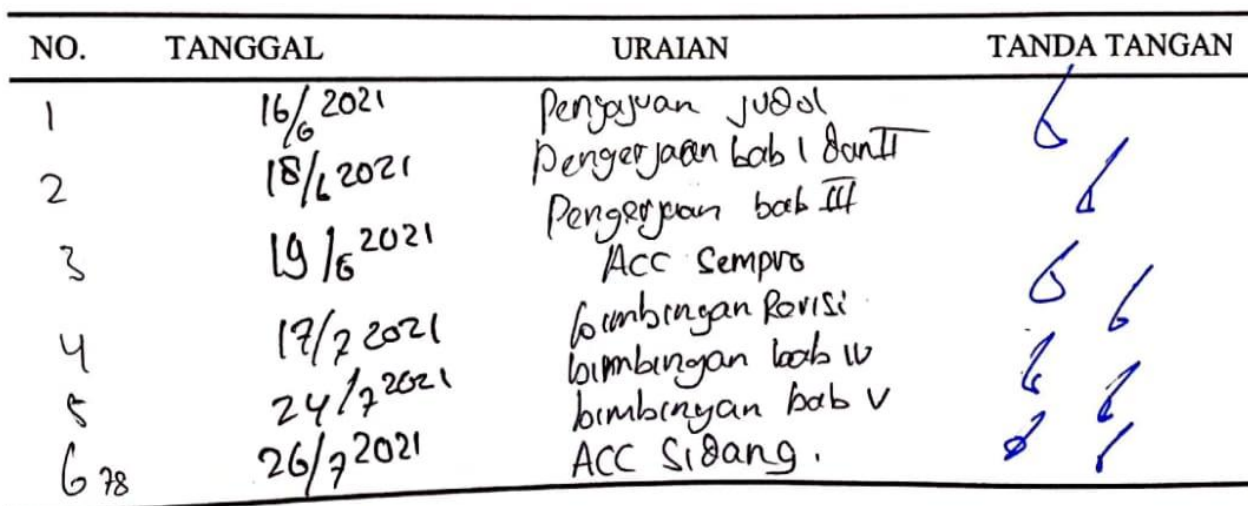 NO. TANGGAL URAIAN TANDA TANGAN
1 16/6 2021 Pengajuan judul
Pengerjaan bab I dan II
2 18/6 2021
Pengerjaan bab III
3 19/6 2021 Acc Sempro
bimbingan Revisi
4 17/7 2021
bimbingan bab IV
5 24/7 2021 bimbingan bab V
6 78 26/7 2021 ACC Sidang.